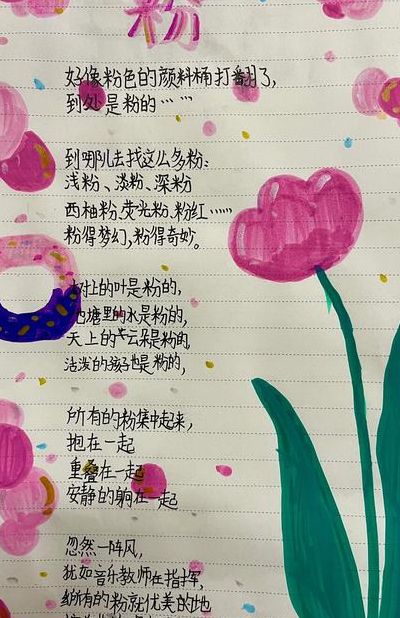 粉
好像粉色的颜料桶打翻了,
到处是粉的……
到哪儿去找这么多粉:
浅粉、淡粉、深粉
西柚粉,荧光粉,粉红……
粉得梦幻,粉得奇妙。
树上的叶是粉的,
池塘里的水是粉的,
天上的云朵是粉的,
活泼的孩子也是粉的,
所有的粉集中起来,
抱在一起
重叠在一起
安静的躺在一起
忽然一阵风,
犹如音乐教师在指挥,
所有的粉就优美的地